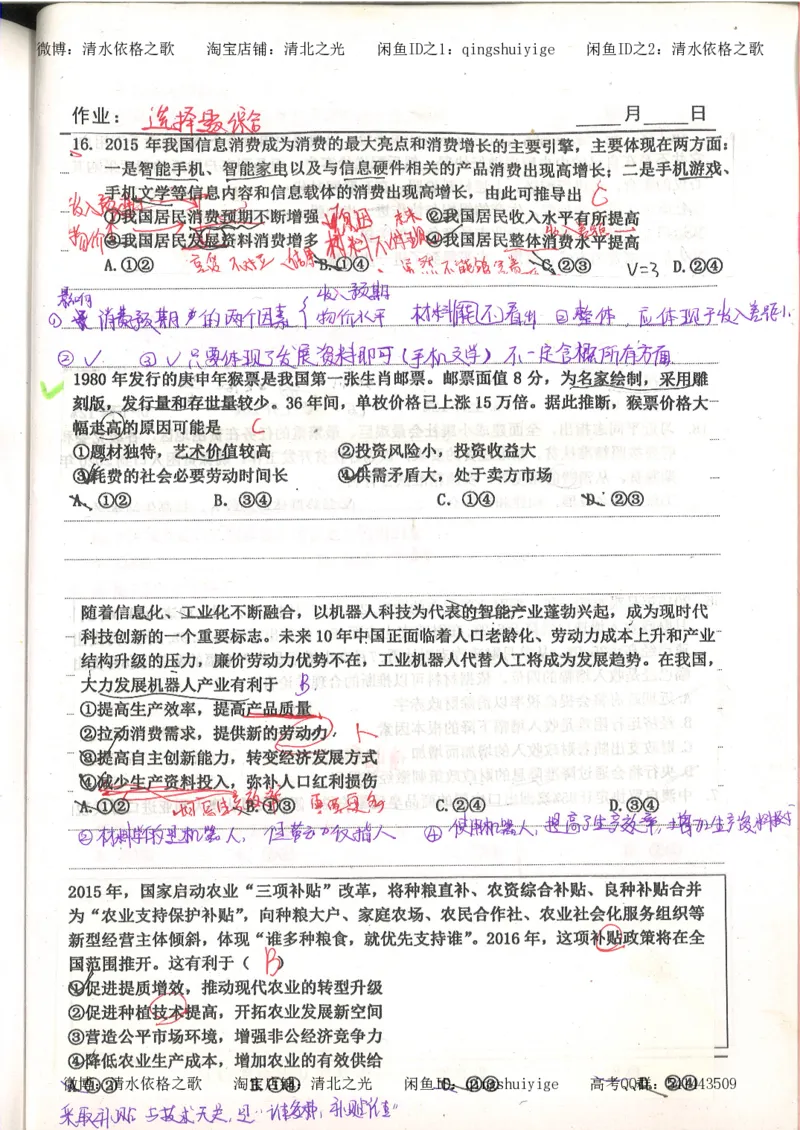 微博：清水依格之歌 淘宝店铺：清北之光 闲鱼ID之1：qingshuiyige 闲鱼ID之2：清水依格之歌
作业： 选择题综合 ____月____日
16. 2015 年我国信息消费成为消费的最大亮点和消费增长的主要引擎，主要体现在两方面：
一是智能手机、智能家电以及与信息硬件相关的产品消费出现高增长；二是手机游戏、
手机文学等信息内容和信息载体的消费出现高增长，由此可推导出 C
收入预期
物价
①我国居民消费预期不断增强 ②我国居民收入水平有所提高
③我国居民发展资料消费增多 材料不体现 ④我国居民整体消费水平提高
收入差距
A. ①② B. ①④ C. ②③ D. ②④
影响
① 消费预期的两个因素 收入预期 物价水平 材料看不出 ④整体，应体现于收入差距小
② ✓ ③ ✓ 只要体现了发展资料即可（手机文学）不一定含概所有方面
1980 年发行的庚申年猴票是我国第一张生肖邮票。邮票面值 8 分，为名家绘制，采用雕
刻版，发行量和存世量较少。36 年间，单枚价格已上涨 15 万倍。据此推断，猴票价格大
幅走高的原因可能是 C
①题材独特，艺术价值较高 ②投资风险小，投资收益大
③耗费的社会必要劳动时间长 ④供需矛盾大，处于卖方市场
A. ①② B. ③④ C. ①④ D. ②③
随着信息化、工业化不断融合，以机器人科技为代表的智能产业蓬勃兴起，成为现时代
科技创新的一个重要标志。未来 10 年中国正面临着人口老龄化、劳动力成本上升和产业
结构升级的压力，廉价劳动力优势不在，工业机器人代替人工将成为发展趋势。在我国，
大力发展机器人产业有利于 B
①提高生产效率，提高产品质量
②拉动消费需求，提供新的劳动力 人
③提高自主创新能力，转变经济发展方式
④减少生产资料投入，弥补人口红利损伤
A. ①② B. ①③ C. ②④ D. ③④
②材料学的是机器人，但劳动力仅指人 ④使用机器人，提高了生产效率，增加生产资料
2015 年，国家启动农业“三项补贴”改革，将种粮直补、农资综合补贴、良种补贴合并
为“农业支持保护补贴”，向种粮大户、家庭农场、农民合作社、农业社会化服务组织等
新型经营主体倾斜，体现“谁多种粮食，就优先支持谁”。2016 年，这项补贴政策将在全
国范围推开。这有利于（ B ）
①促进提质增效，推动现代农业的转型升级
②促进种植技术提高，开拓农业发展新空间
③营造公平市场环境，增强非公经济竞争力
④降低农业生产成本，增加农业的有效供给
A. ①② B. ①④ C. ②③ D. ②④
微博：清水依格之歌 淘宝店铺：清北之光 闲鱼ID：qingshuiyige 高考QQ群：
采取补贴 与技术无关